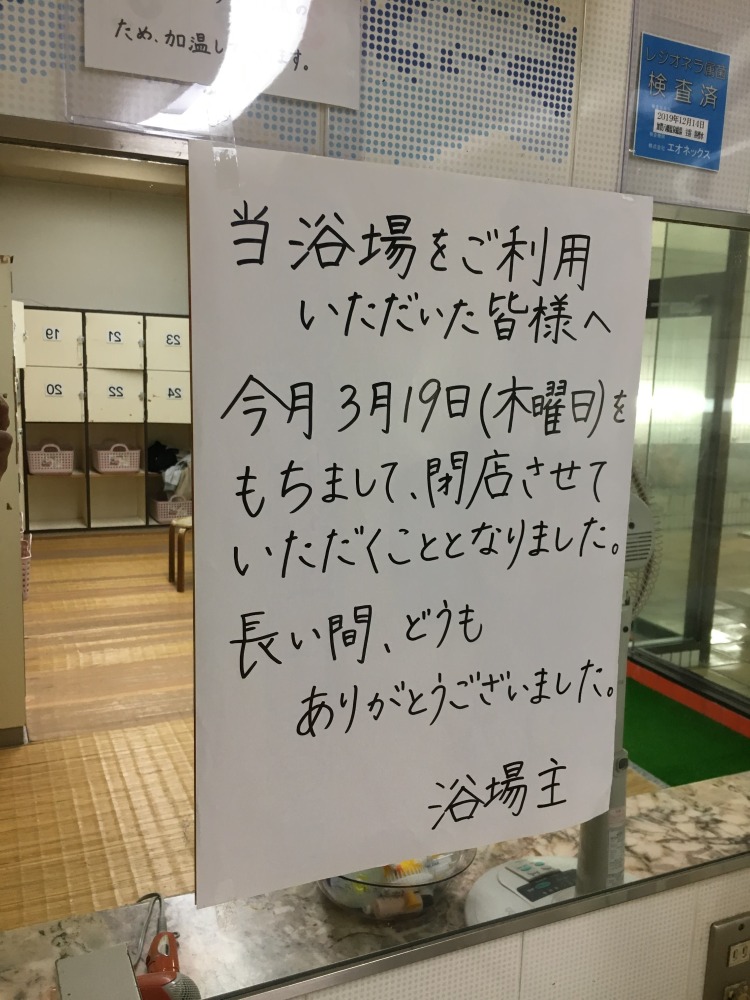 ため、加温し
ます。
レジオネラ属菌
検査済
2019年12月14日
株式会社 エオネックス
当浴場をご利用
いただいた皆様へ
今月3月19日(木曜日)を
もちまして、閉店させて
いただくこととなりました。
長い間、どうも
ありがとうございました。
浴場主
19
21
23
20
22
24